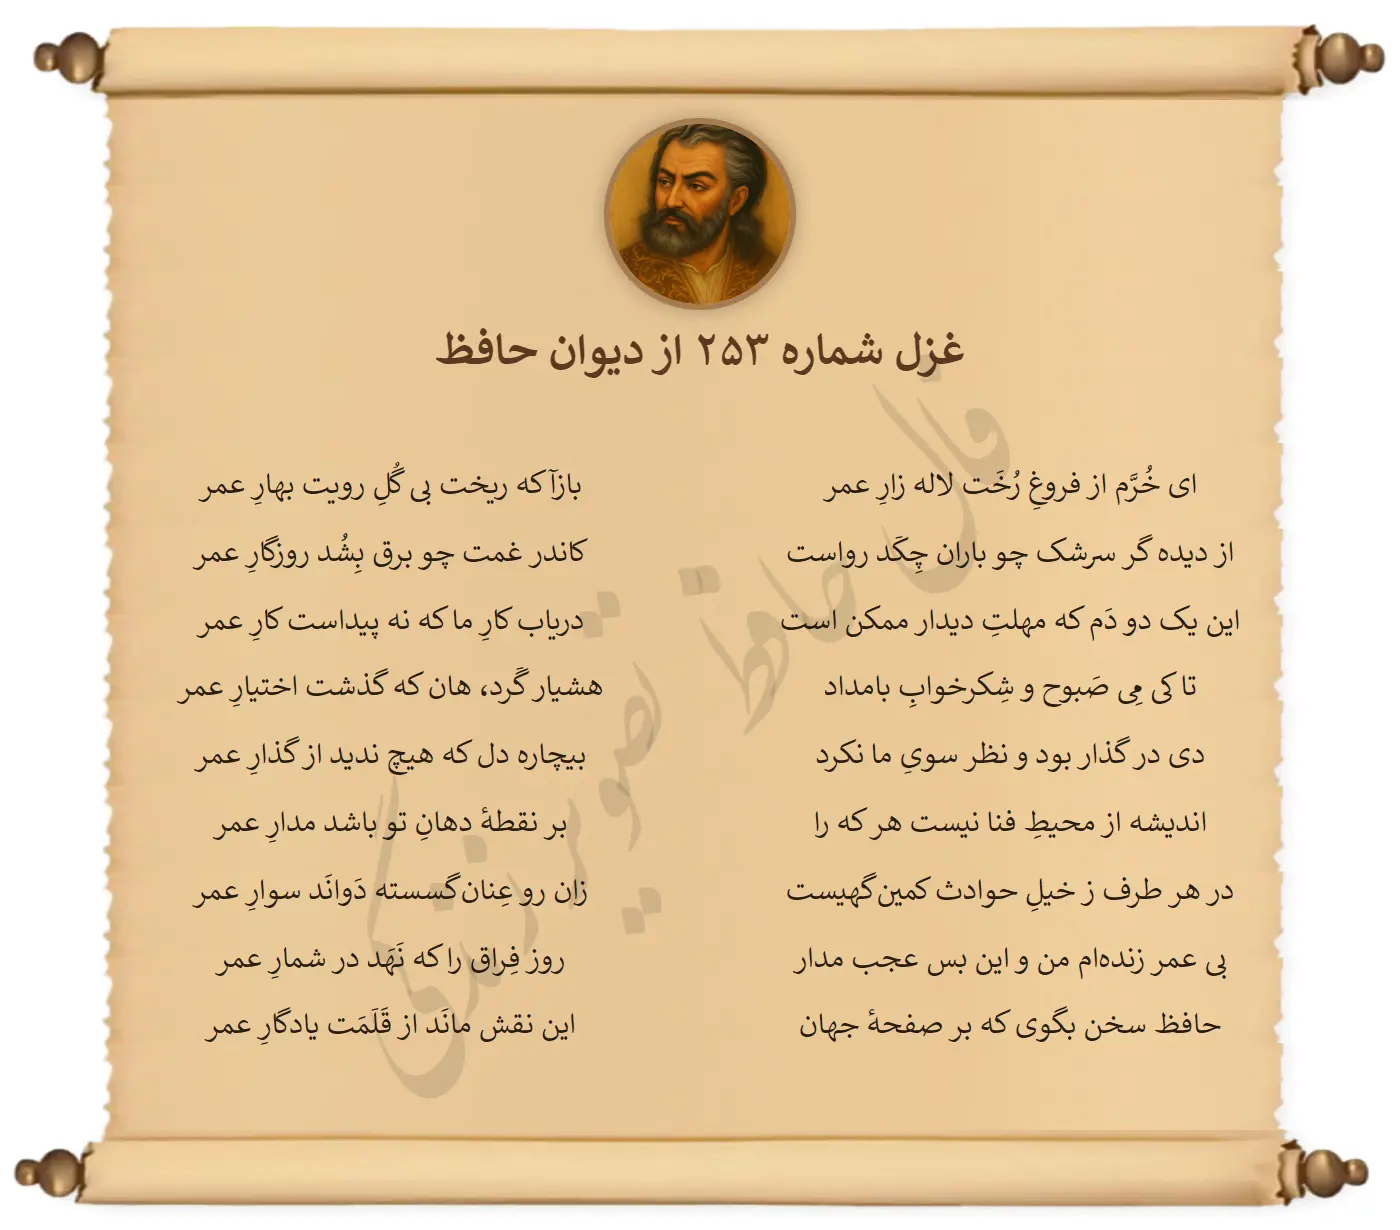 غزل شماره ۲۵۳ از دیوان حافظ
ای خُرَّم از فروغِ رُخَت لاله زارِ عمر بازآ که ریخت بی گُلِ رویت بهارِ عمر
از دیده گر سرشک چو باران چِکَد رواست کاندر غمت چو برق بِشُد روزگارِ عمر
این یک دو دَم که مهلتِ دیدار ممکن است دریاب کارِ ما که نه پیداست کارِ عمر
تا کی مِی صَبوح و شِکرخوابِ بامداد هشیار گَرد، هان که گذشت اختیارِ عمر
دی در گذار بود و نظر سویِ ما نکرد بیچاره دل که هیچ ندید از گذارِ عمر
اندیشه از محیطِ فنا نیست هر که را بر نقطهٔ دهانِ تو باشد مدارِ عمر
در هر طرف ز خیلِ حوادث کمین‌گهیست زان رو عِنان‌گسسته دَوانَد سوارِ عمر
بی عمر زنده‌ام من و این بس عجب مدار روز فِراق را که نَهَد در شمارِ عمر
حافظ سخن بگوی که بر صفحهٔ جهان این نقش مانَد از قَلَمَت یادگارِ عمر
فال حافظ تصویرزندگی